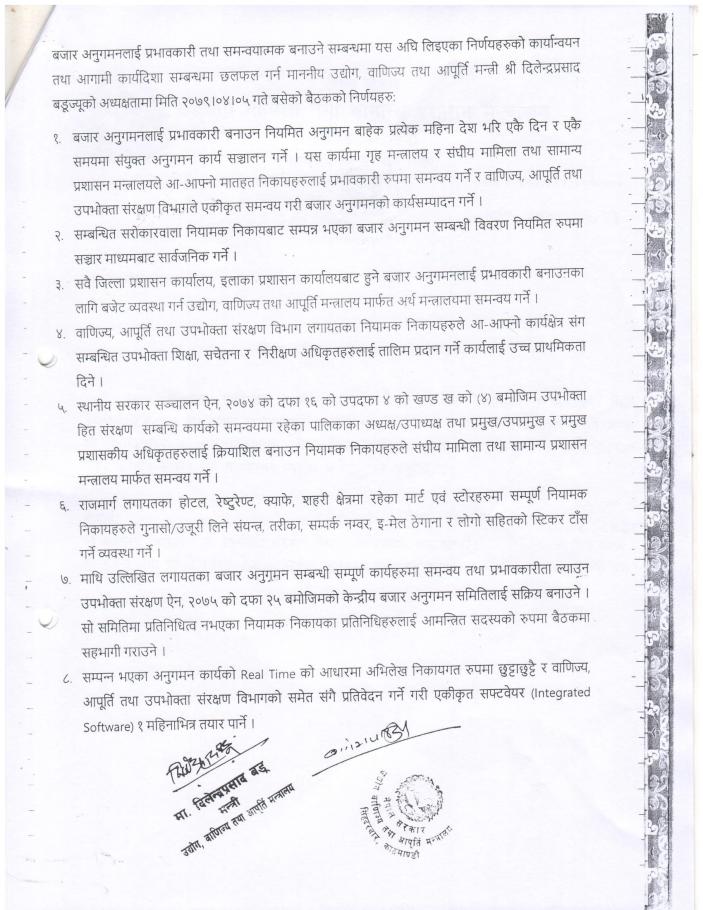 बजार अनुगमनलाई प्रभावकारी तथा समन्वयात्मक बनाउने सम्बन्धमा यस अघि लिइएका निर्णयहरुको कार्यान्वयन
तथा आगामी कार्यदिशा सम्बन्धमा छलफल गर्न माननीय उद्योग, वाणिज्य तथा आपूर्ति मन्त्री श्री दिलेन्द्रप्रसाद
बडूज्यूको अध्यक्षतामा मिति २०७९।०४।०५ गते बसेको बैठकको निर्णयहरु:
१. बजार अनुगमनलाई प्रभावकारी बनाउन नियमित अनुगमन बाहेक प्रत्येक महिना देश भरि एकै दिन र एकै
समयमा संयुक्त अनुगमन कार्य सञ्चालन गर्ने । यस कार्यमा गृह मन्त्रालय र संघीय मामिला तथा सामान्य
प्रशासन मन्त्रालयले आ-आफ्नो मातहत निकायहरुलाई प्रभावकारी रुपमा समन्वय गर्ने र वाणिज्य, आपूर्ति तथा
उपभोक्ता संरक्षण विभागले एकीकृत समन्वय गरी बजार अनुगमनको कार्यसम्पादन गर्ने ।
२. सम्बन्धित सरोकारवाला नियामक निकायबाट सम्पन्न भएका बजार अनुगमन सम्बन्धी विवरण नियमित रुपमा
सञ्चार माध्यमबाट सार्वजनिक गर्ने ।
३. सवै जिल्ला प्रशासन कार्यालय, इलाका प्रशासन कार्यालयबाट हुने बजार अनुगमनलाई प्रभावकारी बनाउनका
लागि बजेट व्यवस्था गर्न उद्योग, वाणिज्य तथा आपूर्ति मन्त्रालय मार्फत अर्थ मन्त्रालयमा समन्वय गर्ने ।
४. वाणिज्य, आपूर्ति तथा उपभोक्ता संरक्षण विभाग लगायतका नियामक निकायहरुले आ-आफ्नो कार्यक्षेत्र संग
सम्बन्धित उपभोक्ता शिक्षा, सचेतना र निरीक्षण अधिकृतहरुलाई तालिम प्रदान गर्ने कार्यलाई उच्च प्राथमिकता
दिने ।
५. स्थानीय सरकार सञ्चालन ऐन, २०७४ को दफा १६ को उपदफा ४ को खण्ड ख को (४) बमोजिम उपभोक्ता
हित संरक्षण सम्बन्धि कार्यको समन्वयमा रहेका पालिकाका अध्यक्ष/उपाध्यक्ष तथा प्रमुख/उपप्रमुख र प्रमुख
प्रशासकीय अधिकृतहरुलाई क्रियाशिल बनाउन नियामक निकायहरुले संघीय मामिला तथा सामान्य प्रशासन
मन्त्रालय मार्फत समन्वय गर्ने ।
६. राजमार्ग लगायतका होटल, रेष्टुरेण्ट, क्याफे, शहरी क्षेत्रमा रहेका मार्ट एवं स्टोरहरुमा सम्पूर्ण नियामक
निकायहरुले गुनासो/उजूरी लिने संयन्त्र, तरीका, सम्पर्क नम्वर, इ-मेल ठेगाना र लोगो सहितको स्टिकर टाँस
गर्ने व्यवस्था गर्ने ।
७. माथि उल्लिखित लगायतका बजार अनुगमन सम्बन्धी सम्पूर्ण कार्यहरुमा समन्वय तथा प्रभावकारीता ल्याउन
उपभोक्ता संरक्षण ऐन, २०७५ को दफा २५ बमोजिमको केन्द्रीय बजार अनुगमन समितिलाई सक्रिय बनाउने ।
सो समितिमा प्रतिनिधित्व नभएका नियामक निकायका प्रतिनिधिहरुलाई आमन्त्रित सदस्यको रुपमा बैठकमा
सहभागी गराउने ।
८. सम्पन्न भएका अनुगमन कार्यको Real Time को आधारमा अभिलेख निकायगत रुपमा छुट्टाछुट्टै र वाणिज्य,
आपूर्ति तथा उपभोक्ता संरक्षण विभागको समेत संगै प्रतिवेदन गर्ने गरी एकीकृत सफ्टवेयर (Integrated
Software) १ महिनाभित्र तयार पार्ने ।
मा. दिलेन्द्रप्रसाद बडू
मन्त्री
उद्योग, वाणिज्य तथा आपूर्ति मन्त्रालय
नेपाल सरकार
उद्योग वाणिज्य तथा आपूर्ति मन्त्रालय
सिंहदरबार, काठमाण्डौ